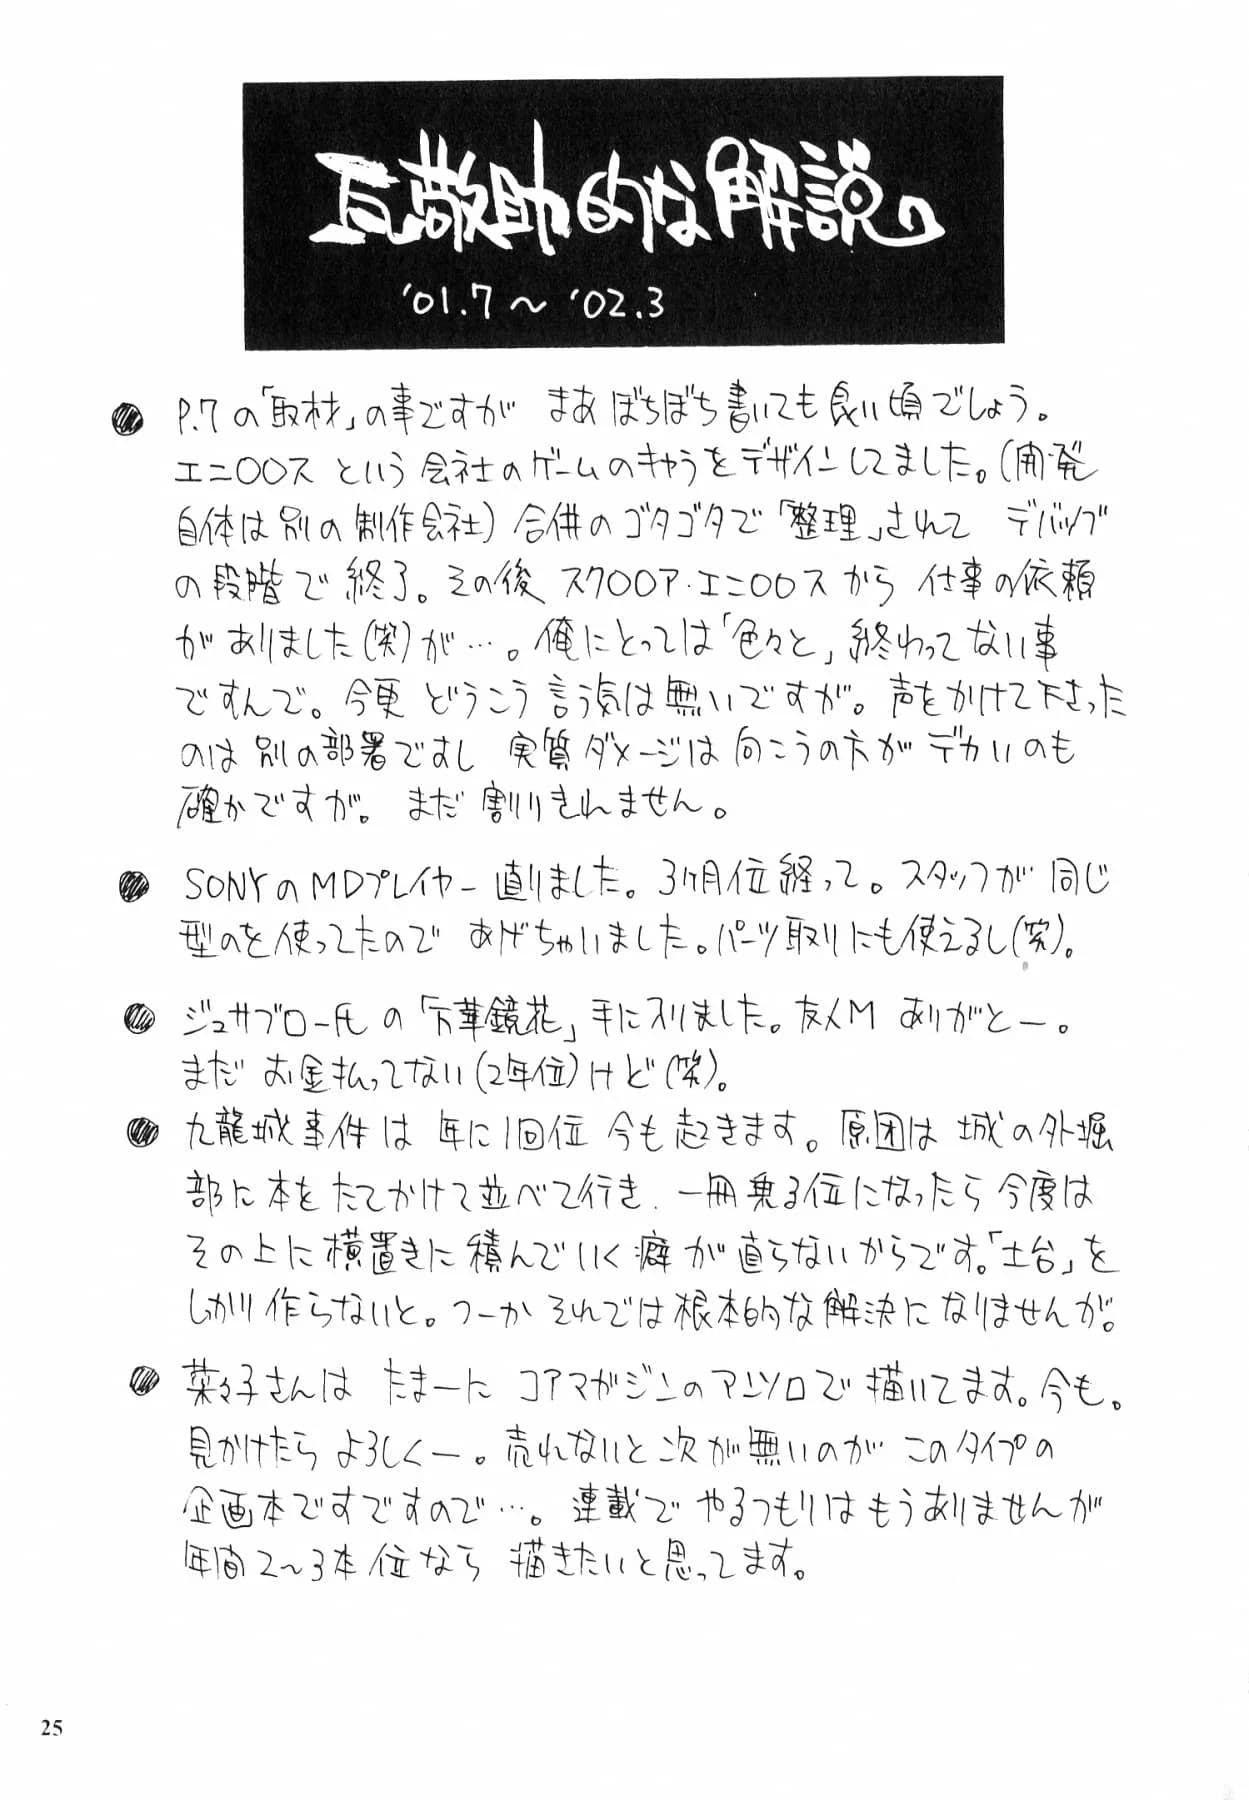 瓦敬助的な解説。
'01.7～'02.3
P.7の「取材」の事ですが まあ ぼちぼち書いても良い頃でしょう。
エニ○○ス という 会社のゲームのキャラをデザインしてました。(開発
自体は別の制作会社)合併のゴタゴタで「整理」されて デバッグ
の段階で終了。その後 スク○○ア・エニ○○スから 仕事の依頼
がありました(笑)が…。俺にとっては「色々と」終わってない事
ですんで。今更 どうこう言う気は無いですが。声をかけて下さった
のは別の部署ですし 実質ダメージは向こうの方がデカいのも
確かですが。まだ 割りきれません。
SONYのMDプレイヤー直りました。3ヶ月位経って。スタッフが同じ
型のを使ってたので あげちゃいました。パーツ取りにも使えるし(笑)。
ジュサブロー氏の「万華鏡花」手に入りました。友人M ありがとー。
まだ お金払ってない(2年位)けど(笑)。
九龍城事件は 年に1回位 今も起きます。原因は 城の外堀
部に本をたてかけて並べて行き. 一冊乗る位になったら今度は
その上に横置きに積んでいく癖が直らないからです。「土台」を
しっかり作らないと。つーか それでは根本的な解決になりませんが。
菜々子さんは たまーに コアマガジンのアンソロで描いてます。今も。
見かけたら よろしくー。売れないと次が無いのが このタイプの
企画本ですですので…。連載で やるつもりはもうありませんが
年間2～3本位なら 描きたいと思ってます。
25